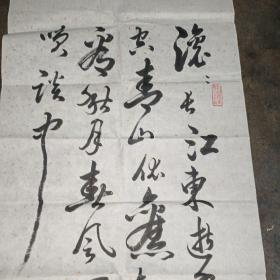 滚〻长江東逝
空青山依舊
看秋月春風
笑談中